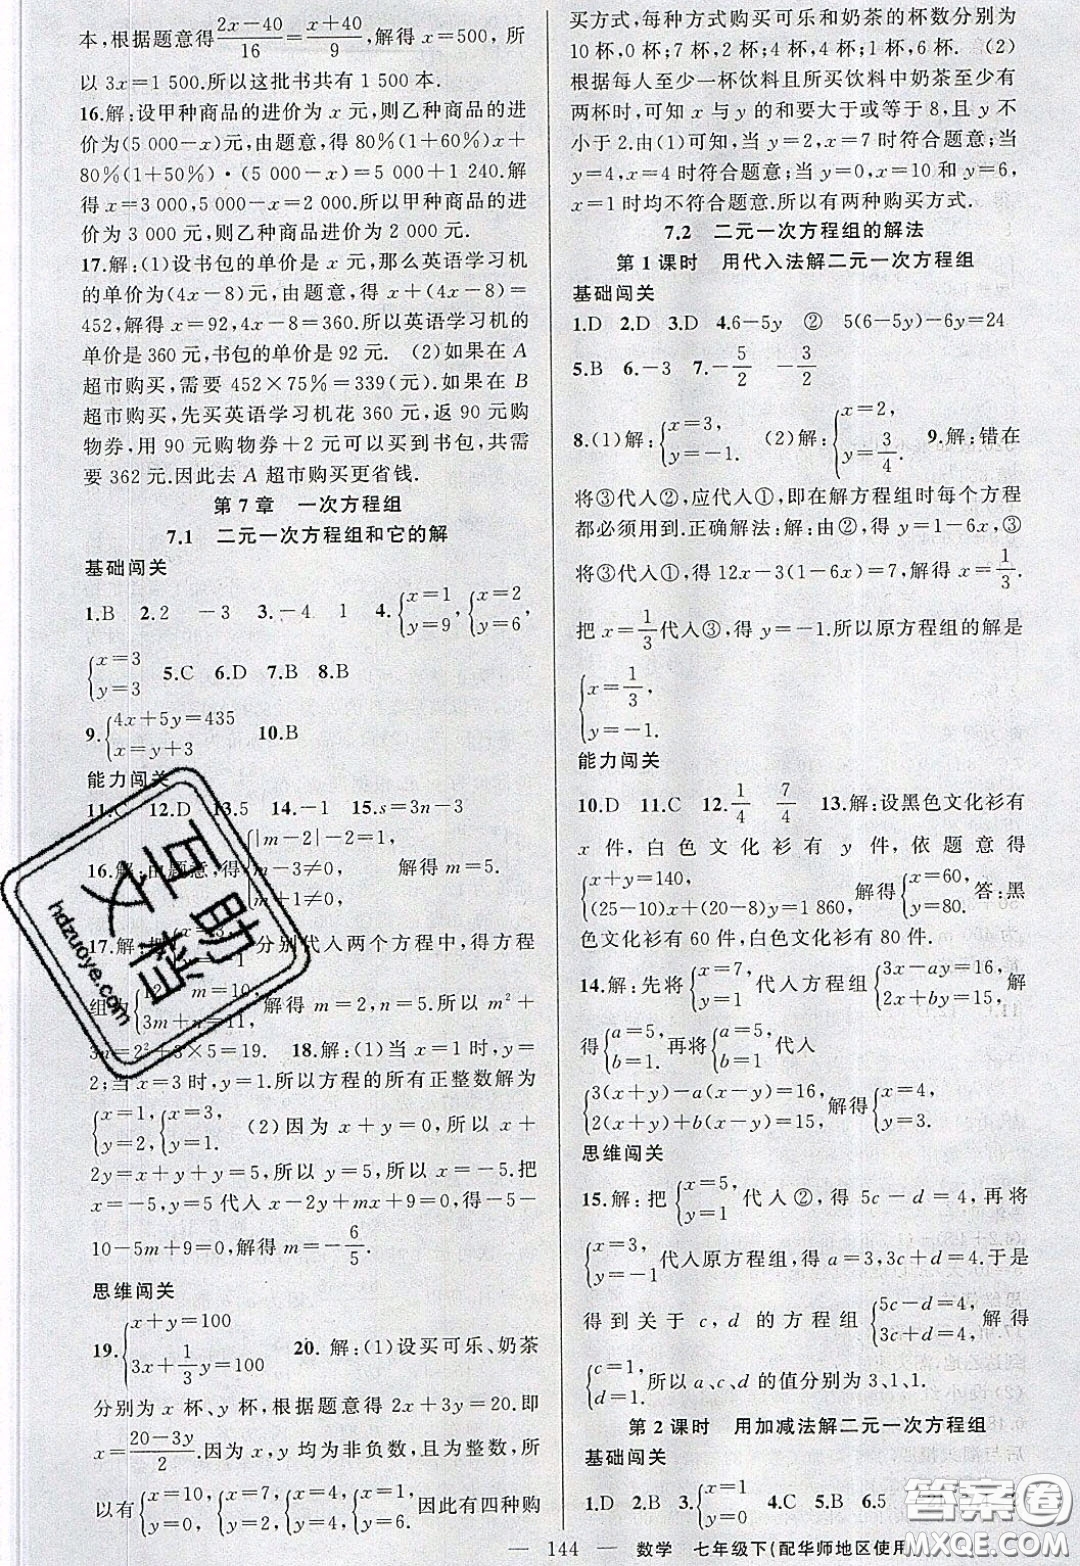 本,根据题意得(2x-40)/16=(x+40)/9,解得 x=500, 所
以 3x=1 500.所以这批书共有 1 500 本.
16.解:设甲种商品的进价为 x 元,则乙种商品的进
价为(5 000-x)元,由题意,得 80%(1+40%)x+
80%(1+50%)·(5 000-x)=5 000+1 240.解
得 x=3 000,5 000-x=2 000.所以甲种商品进
价为 3 000 元,则乙种商品进价为 2 000 元.
17.解:(1)设书包的单价是 x 元,那么英语学习机
的单价为(4x-8)元,由题意,得 x+(4x-8)=
452,解得 x=92,4x-8=360.所以英语学习机的
单价是 360 元,书包的单价是 92 元. (2)如果在 A
超市购买,需要 452×75%=339(元).如果在 B
超市购买,先买英语学习机花 360 元,返 90 元购
物券,用 90 元购物券+2 元可以买到书包,共需
要 362 元.因此去 A 超市购买更省钱.
第 7 章 一次方程组
7.1 二元一次方程组和它的解
基础闯关
1.B 2.2 -3 3.-4 1 4.{x=1, y=9, {x=2, y=6,
{x=3 y=3 5.C 6.D 7.B 8.B
9.{4x+5y=435 x=y+3 10.B
能力闯关
11.C 12.D 13.5 14.-1 15.s=3n-3
16.解:由题意,得{|m-2|-2=1, m-3≠0, m+1≠0, 解得 m=5.
17.解:把 分别代入两个方程中,得方程
m=10, 3m+n=11, 解得 m=2,n=5.所以 m²+
3n=2²+3×5=19. 18.解:(1)当 x=1 时,y=
2;当 x=3 时,y=1.所以方程的所有正整数解为
{x=1, y=2, {x=3, y=1. (2)因为 x+y=0,所以 x+
2y=x+y+y=5,所以 y=5,所以 x=-5.把
x=-5,y=5 代入 x-2y+mx+9=0,得-5-
10-5m+9=0,解得 m=-6/5.
思维闯关
19.{x+y=100 3x+1/3y=100 20.解:(1)设买可乐、奶茶
分别为 x 杯、y 杯,根据题意得 2x+3y=20.即
x=(20-3y)/2.因为 x,y 均为非负数,且为整数,所
以有{x=10, y=0, {x=7, y=2, {x=4, y=4, {x=1, y=6. 因此有四种购
买方式,每种方式购买可乐和奶茶的杯数分别为
10 杯,0 杯;7 杯,2 杯;4 杯,4 杯;1 杯,6 杯. (2)
根据每人至少一杯饮料且所买饮料中奶茶至少有
两杯时,可知 x 与 y 的和要大于或等于 8,且 y 不
小于 2.由(1)可知,当 y=2,x=7 时符合题意;当
y=4,x=4 时符合题意;当 y=0,x=10 和 y=6,
x=1 时均不符合题意.所以有两种购买方式.
7.2 二元一次方程组的解法
第 1 课时 用代入法解二元一次方程组
基础闯关
1.D 2.D 3.D 4.6-5y ② 5(6-5y)-6y=24
5.B 6.-3 7.-5/2 -3/2
8.(1)解:{x=3, y=2. (2)解:{x=2, y=3/4. 9.解:错在
将③代入②,应代入①,即在解方程组时每个方程
都必须用到.正确解法:解:由②,得 y=1-6x,③
将③代入①,得 12x-3(1-6x)=7,解得 x=1/3.
把 x=1/3代入③,得 y=-1.所以原方程组的解是
{x=1/3, y=-1.
能力闯关
10.D 11.C 12.1/4 7/4 13.解:设黑色文化衫有
x 件,白色文化衫有 y 件,依题意得
{x+y=140, (25-10)x+(20-8)y=1 860, 解得{x=60, y=80. 答:黑
色文化衫有 60 件,白色文化衫有 80 件.
14.解:先将{x=7, y=1 代入方程组{3x-ay=16, 2x+by=15, 解
得{a=5, b=1. 再将{a=5, b=1 代入
{3(x+y)-a(x-y)=16, 2(x+y)+b(x-y)=15, 解得{x=4, y=3.
思维闯关
15.解:把{x=5, y=1 代入②,得 5c-d=4,再将
{x=3, y=-1 代入原方程组,得 a=3,3c+d=4.于是
得到关于 c,d 的方程组{5c-d=4, 3c+d=4,解得
{c=1, d=1, 所以 a、c、d 的值分别为 3、1、1.
第 2 课时 用加减法解二元一次方程组
基础闯关
1.D 2.B 3.{x=1 y=0 4.C 5.B 6.5
— 144 — 数学 七年级下(配华师地区使用
互助文档
hdzuoye.com
答案卷
MXQE.COM